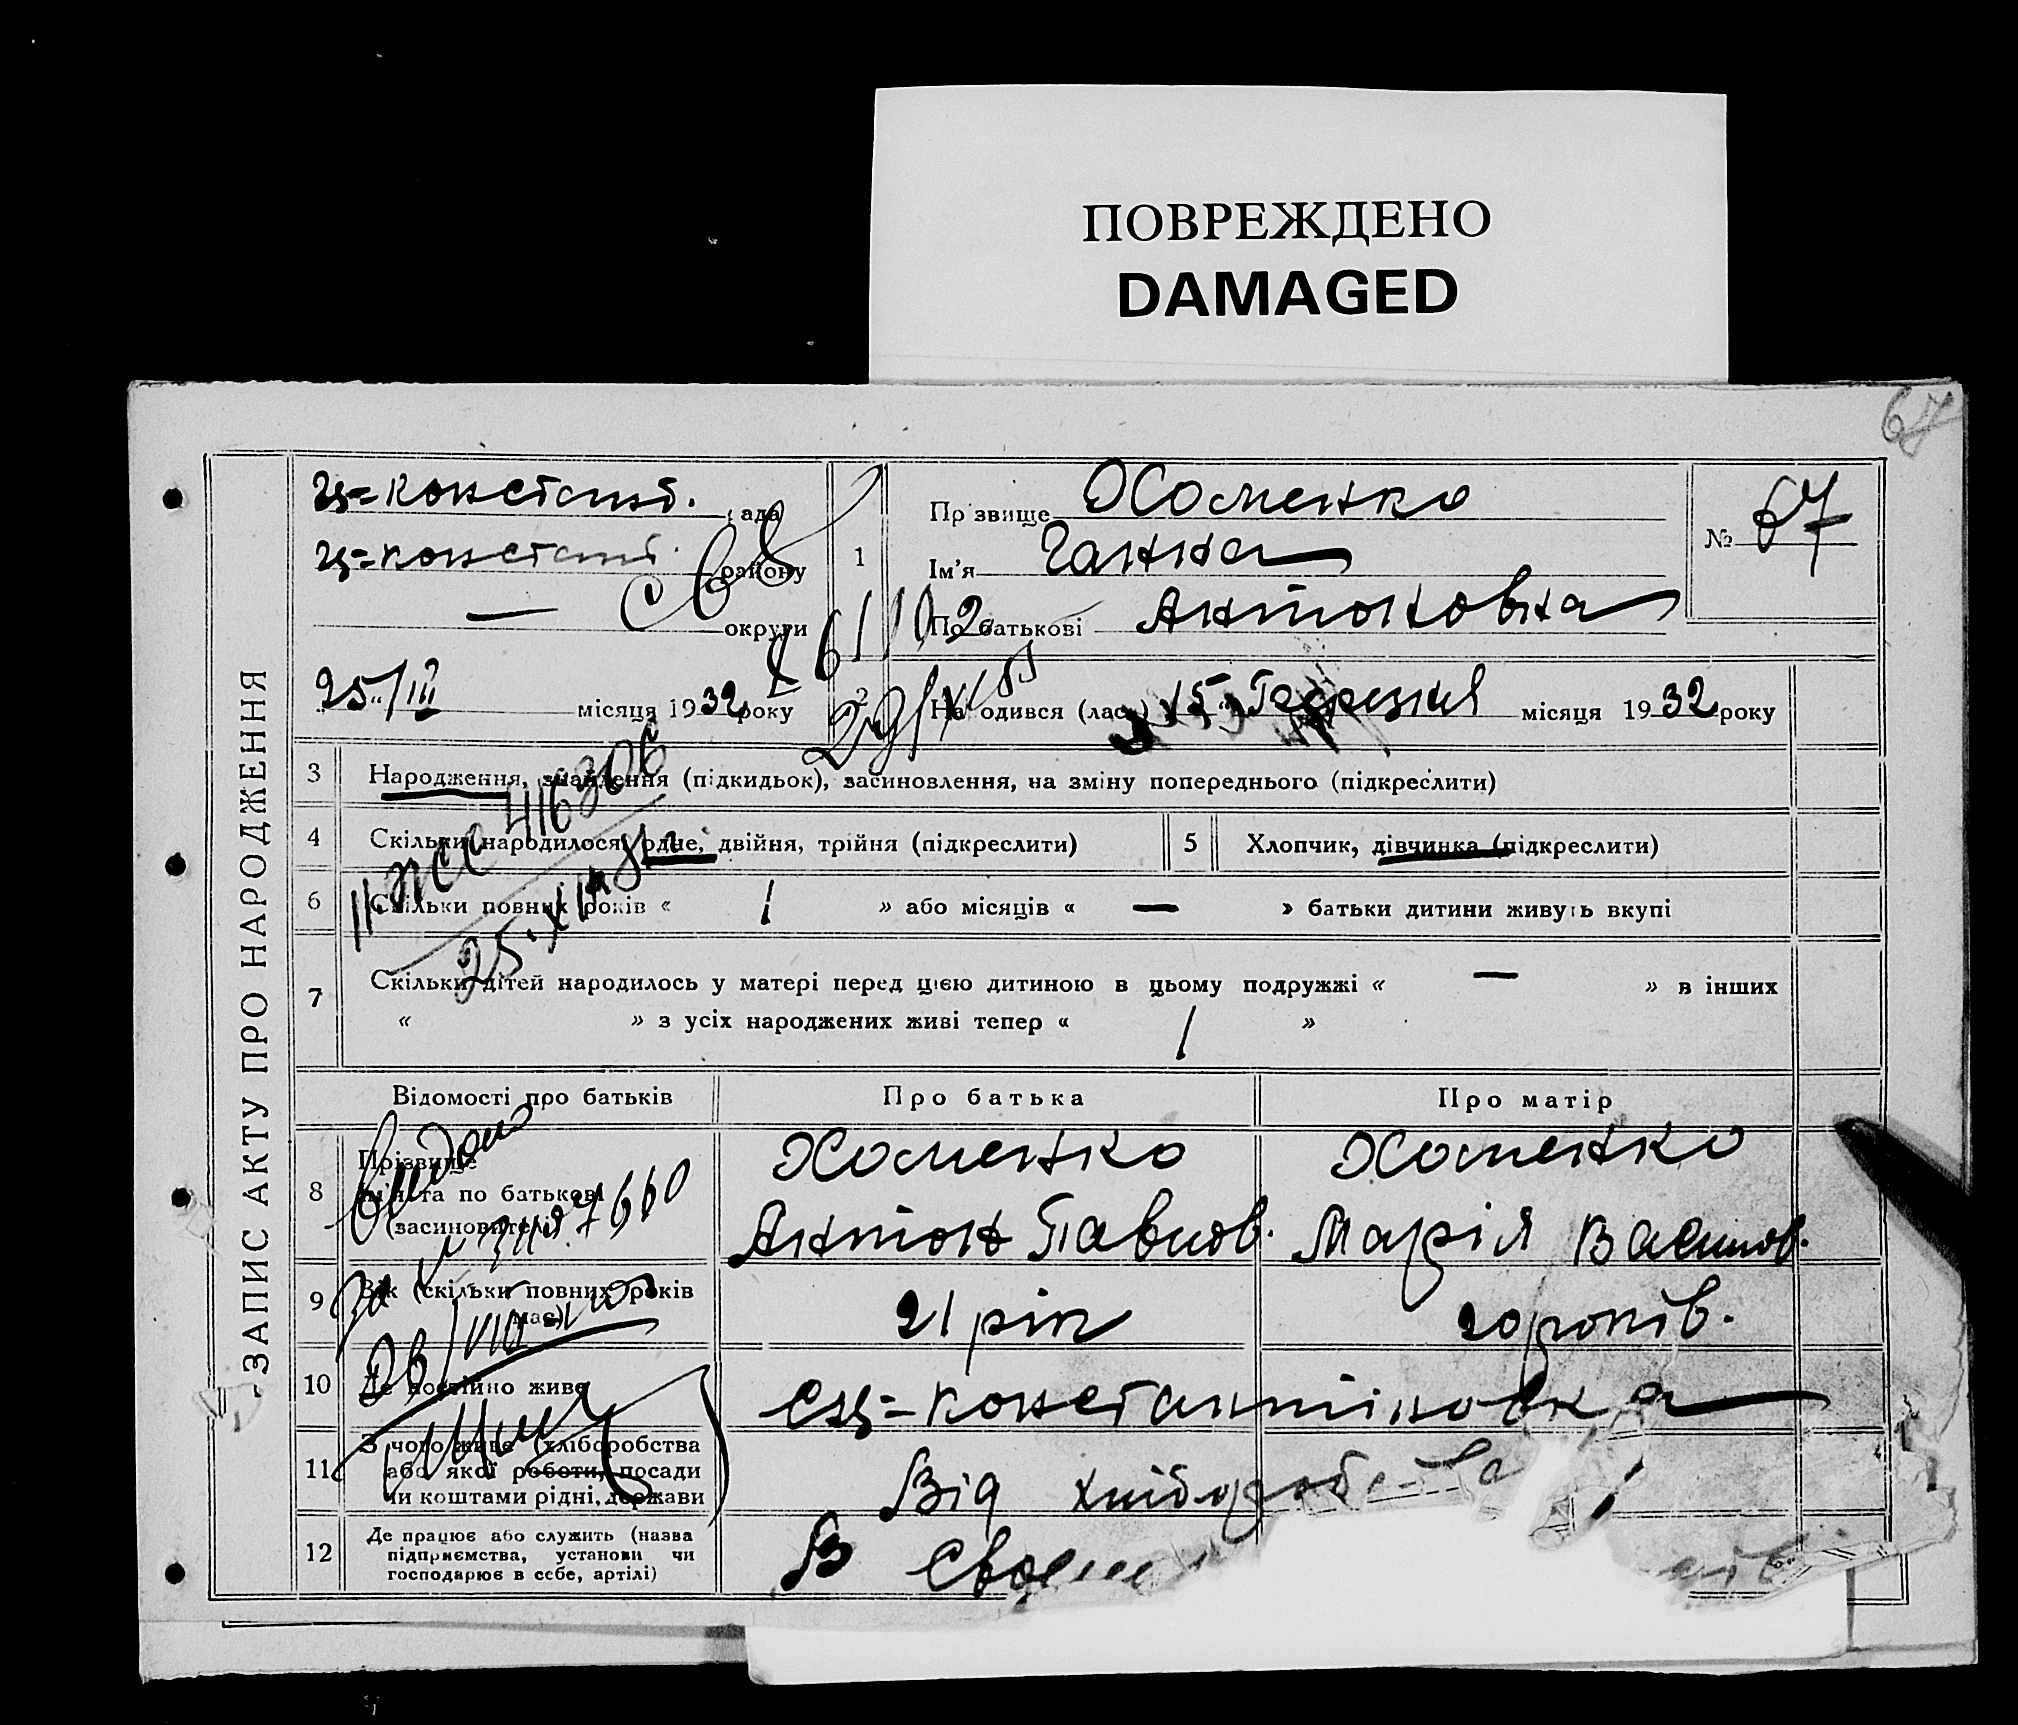 ПОВРЕЖДЕНО
DAMAGED
67
ЗАПИС АКТУ ПРО НАРОДЖЕННЯ
Ц=констант. рада
Ц=констант. району
— округи
25/III місяця 1932 року
1
Прізвище Хоменко
Ім'я Ганна
По батькові Антоновна
№ 67
2
На одився (лась) 15 березня місяця 1932 року
3 Народження, знайдення (підкидьок), засиновлення, на зміну попереднього (підкреслити)
4 Скільки народилося: одне, двійня, трійня (підкреслити)
5 Хлопчик, дівчинка (підкреслити)
6 Скільки повних років « 1 » або місяців « — » батьки дитини живуть вкупі
7 Скільки дітей народилось у матері перед цією дитиною в цьому подружжі « — » в інших
« » з усіх народжених живі тепер « 1 »
29/XI 55
416306
Відомості про батьків
Про батька
Про матір
8 Прізвище
ім'я та по батькові
(засновителів)
Хоменко
Антон Павлов.
Хоменко
Марія Васильов.
9 Вік (скільки повних років має)
21 рік
20 років.
10 Де постійно живе
с Ц=константіновка
11 З чого живе (хліборобства
або якої роботи, посади
чи коштами рідні, держави
Від хліборобства
12 Де працює або служить (назва
підприємства, установи чи
господарює в себе, артілі)
В своєму
видано
7660